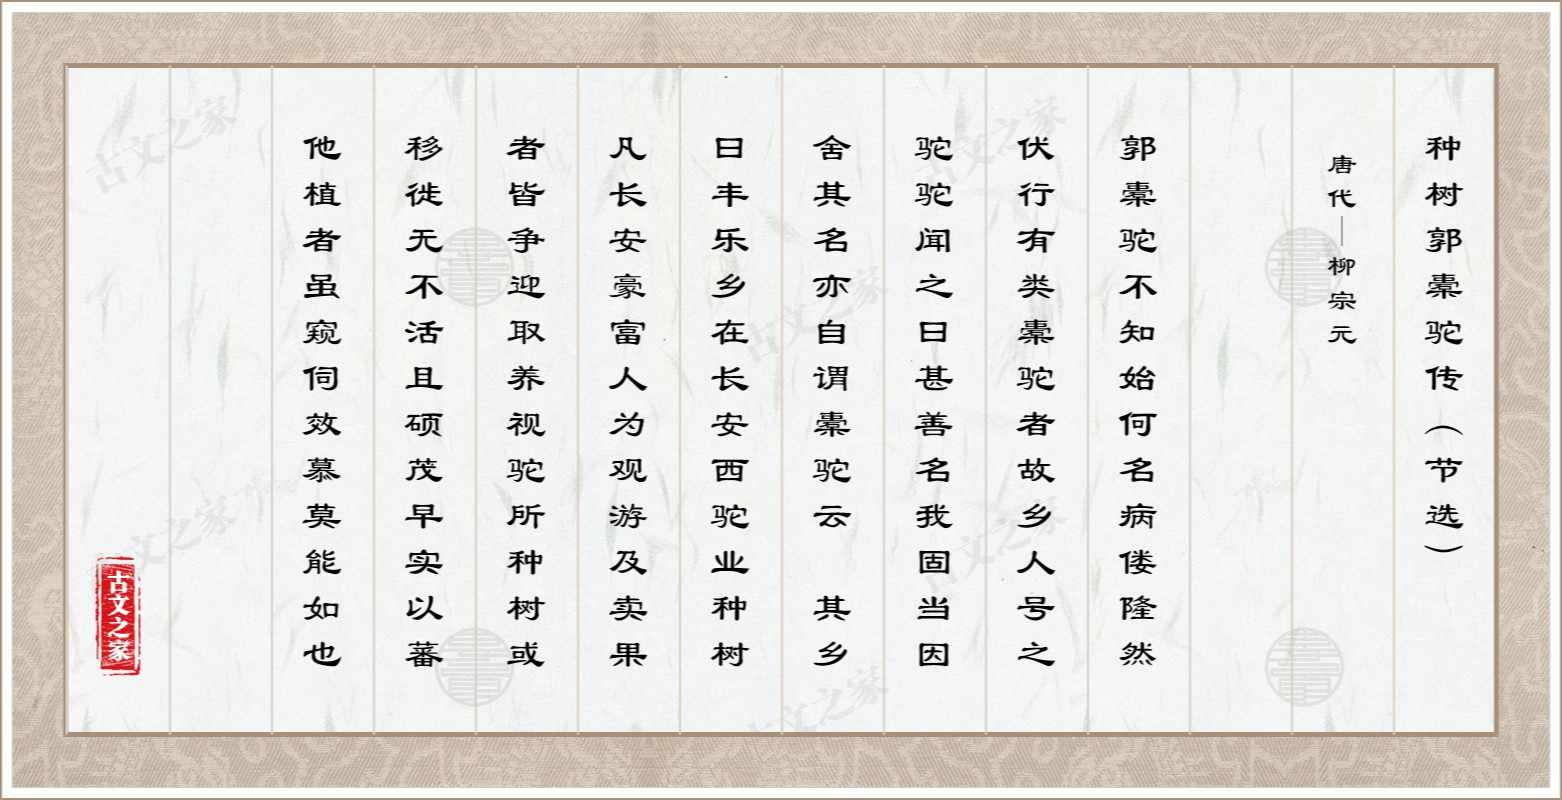 种树郭橐驼传（节选）
唐代—柳宗元
郭橐驼不知始何名病偻隆然
伏行有类橐驼者故乡人号之
驼驼闻之曰甚善名我固当因
舍其名亦自谓橐驼云 其乡
曰丰乐乡在长安西驼业种树
凡长安豪富人为观游及卖果
者皆争迎取养视驼所种树或
移徙无不活且硕茂早实以蕃
他植者虽窥伺效慕莫能如也
古文之家
古文之家
古文之家
古文之家
古文之家
古文之家
古文之家